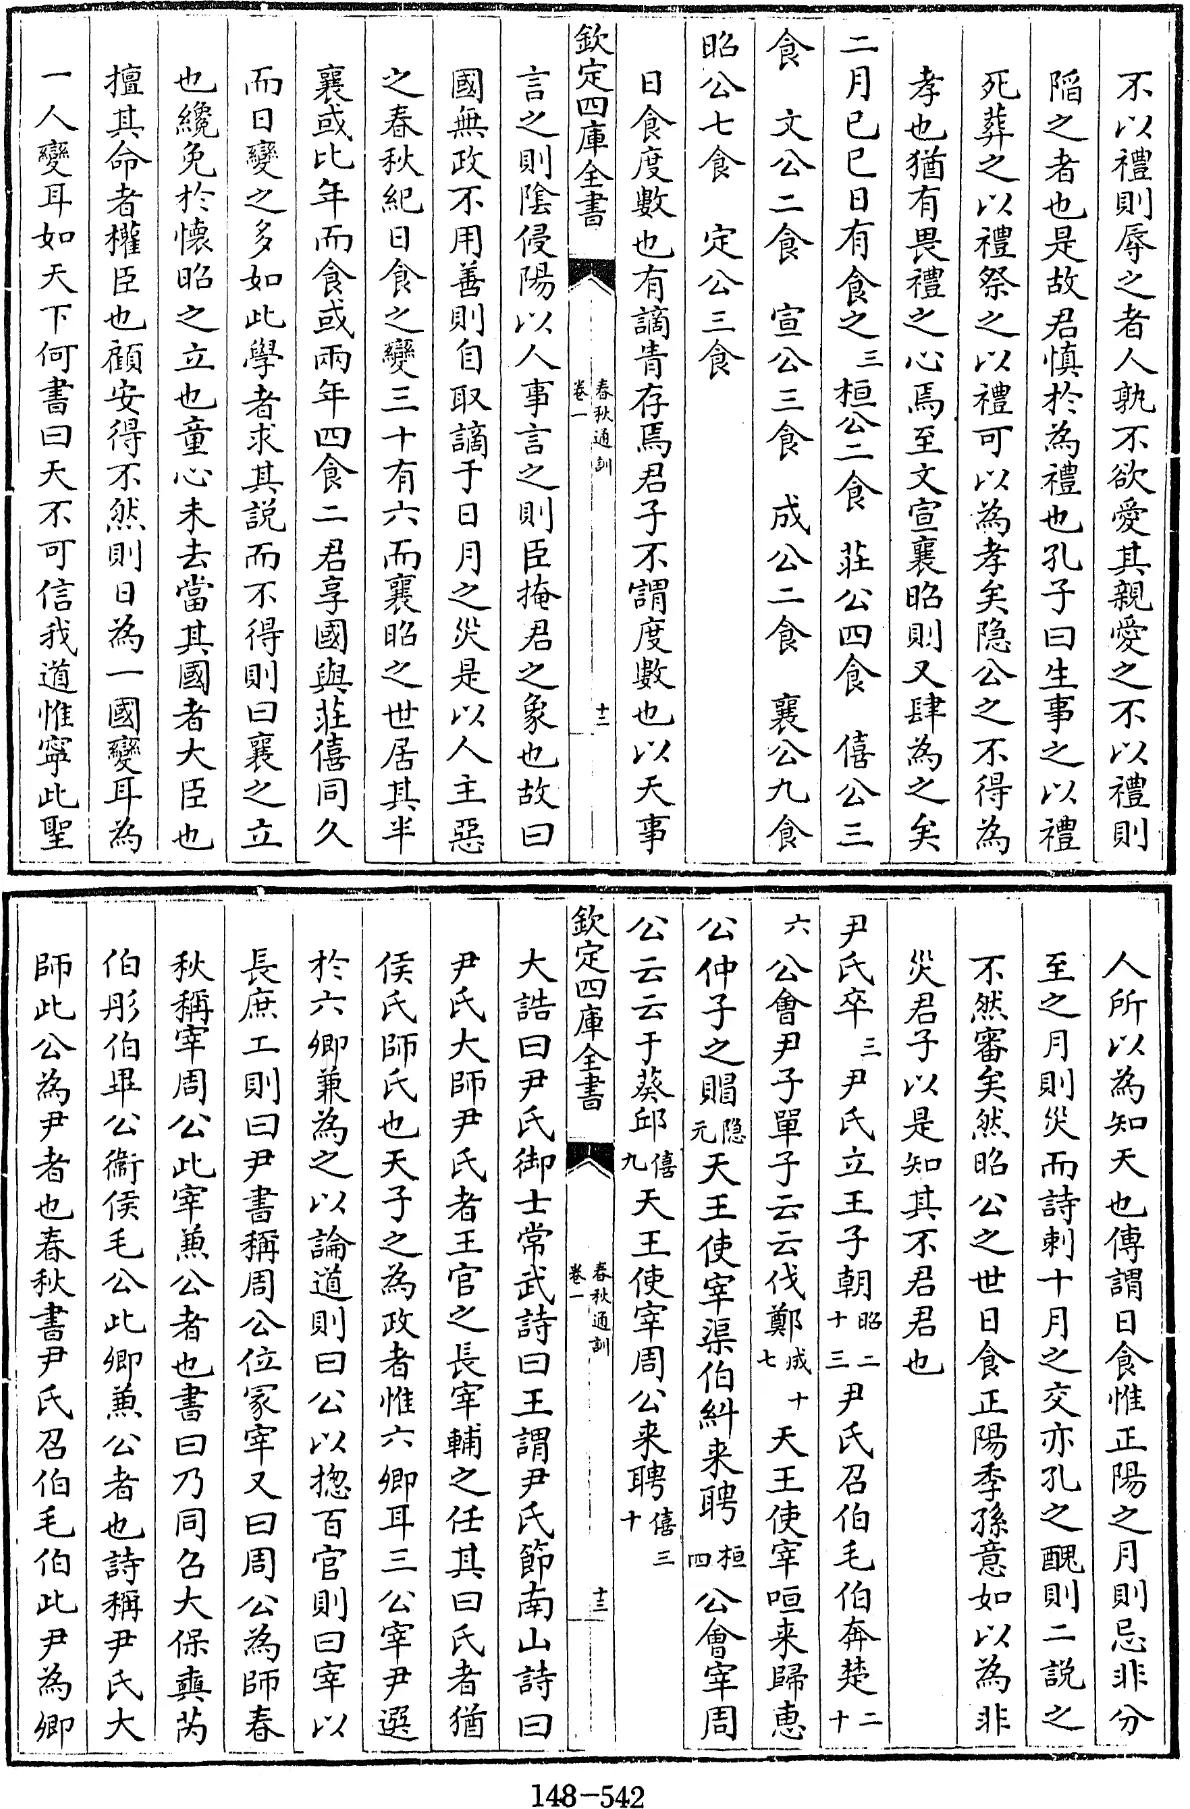 不以禮則辱之者人孰不欲愛其親愛之不以禮則
陷之者也是故君慎於為禮也孔子曰生事之以禮
死葬之以禮祭之以禮可以為孝矣隐公之不得為
孝也猶有畏禮之心焉至文宣襄昭則又肆為之矣
二月已巳日有食之三桓公二食 莊公四食 僖公三
食 文公二食 宣公三食 成公二食 襄公九食
昭公七食 定公三食
日食度數也有謫眚存焉君子不謂度數也以天事
欽定四庫全書
春秋通訓
卷一
十二
言之則陰侵陽以人事言之則臣掩君之象也故曰
國無政不用善則自取謫于日月之災是以人主惡
之春秋紀日食之變三十有六而襄昭之世居其半
襄或比年而食或兩年四食二君享國與莊僖同久
而日變之多如此學者求其説而不得則曰襄之立
也纔免於懐昭之立也童心未去當其國者大臣也
擅其命者權臣也顧安得不然則日為一國變耳為
一人變耳如天下何書曰天不可信我道惟寧此聖
人所以為知天也傳謂日食惟正陽之月則忌非分
至之月則災而詩刺十月之交亦孔之醜則二説之
不然審矣然昭公之世日食正陽季孫意如以為非
災君子以是知其不君君也
尹氏卒三尹氏立王子朝昭二十三尹氏召伯毛伯奔楚二十
六公會尹子單子云云伐鄭成十七天王使宰咺来歸惠
公仲子之賵隐元天王使宰渠伯糾来聘桓四公會宰周
公云云于葵邱僖九天王使宰周公来聘僖三十
欽定四庫全書
春秋通訓
卷一
十三
大誥曰尹氏御士常武詩曰王謂尹氏節南山詩曰
尹氏大師尹氏者王官之長宰輔之任其曰氏者猶
侯氏師氏也天子之為政者惟六卿耳三公宰尹選
於六卿兼為之以論道則曰公以揔百官則曰宰以
長庶工則曰尹書稱周公位冢宰又曰周公為師春
秋稱宰周公此宰兼公者也書曰乃同召大保奭芮
伯彤伯畢公衞侯毛公此卿兼公者也詩稱尹氏大
師此公為尹者也春秋書尹氏召伯毛伯此尹為卿
148-542